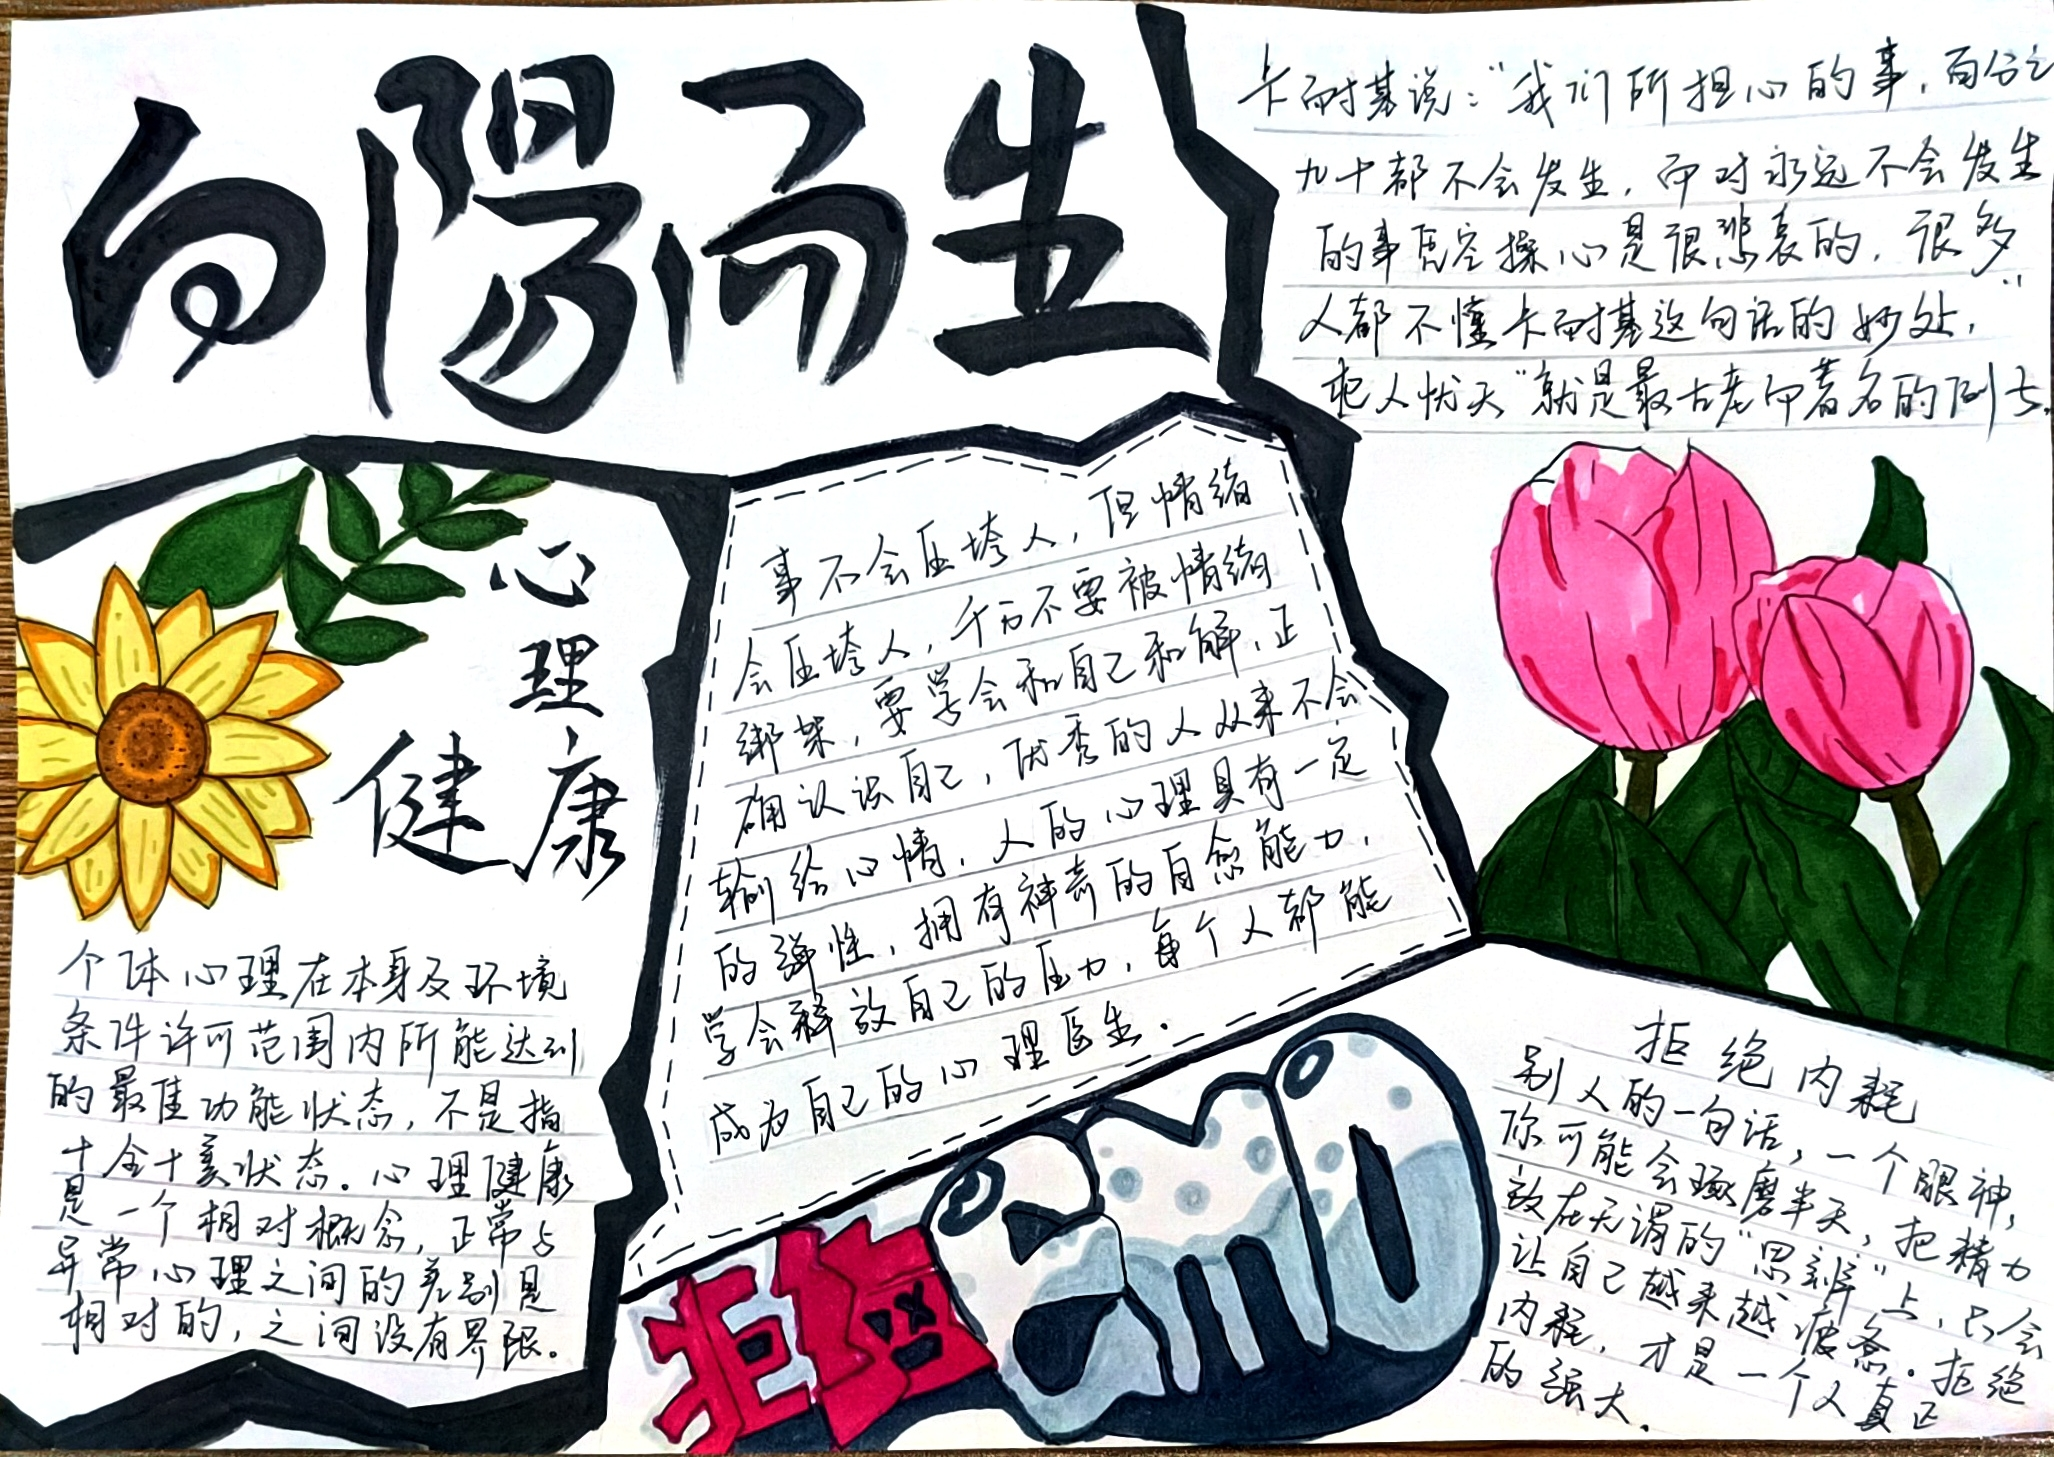 向陽而生
卡耐基说：“我们所担心的事，百分之
九十都不会发生，而对永远不会发生
的事凭空操心是很悲哀的，很多”
人都不懂卡耐基这句话的妙处，
杞人忧天”就是最古老而著名的例子。
心
理
健康
个体心理在本身及环境
条件许可范围内所能达到
的最佳功能状态，不是指
十全十美状态。心理健康
是一个相对概念，正常与
异常心理之间的差别是
相对的，之间没有界限。
事不会压垮人，但情绪
会压垮人，千万不要被情绪
绑架，要学会和自己和解，正
确认识自己，优秀的人从来不会
输给心情，人的心理具有一定
的弹性，拥有神奇的自愈能力，
学会释放自己的压力，每个人都能
成为自己的心理医生。
拒绝emo
拒绝内耗
别人的一句话，一个眼神，
你可能会琢磨半天，把精力
放在无谓的“思辨”上，只会
让自己越来越疲惫。拒绝
内耗，才是一个人真正
的强大。